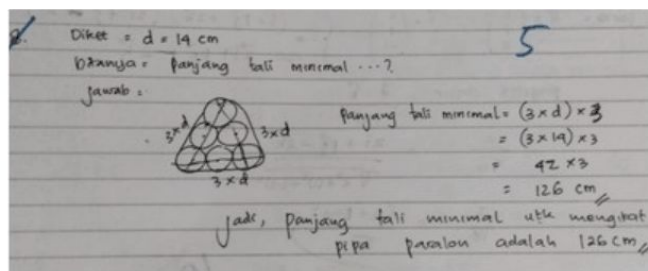 8. Diket = d = 14 cm
5
btanya = Panjang tali minimal ...?
Jawab =
3 × d
3 × d
3 × d
Panjang tali minimal = (3 × d) × 3
= (3 × 14) × 3
= 42 × 3
= 126 cm
Jadi, panjang tali minimal utk mengikat
pipa paralon adalah 126 cm